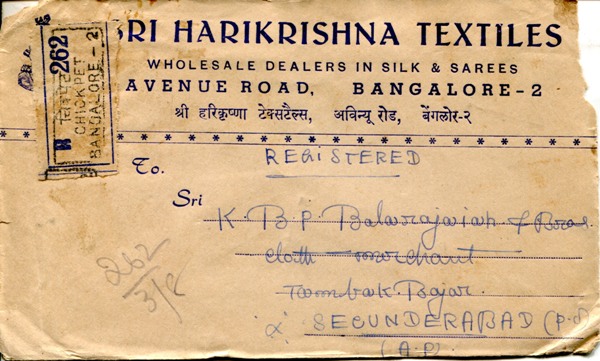 SRI HARIKRISHNA TEXTILES
WHOLESALE DEALERS IN SILK & SAREES
AVENUE ROAD, BANGALORE-2
श्री हरिकृष्णा टेक्सटैल्स, अविन्यू रोड, बेंगलोर-२
R 262
चिकपेट
CHICKPET
BANGALORE-2
REGISTERED
To.
Sri
K. B. P. Balarajaiah & Bros.
cloth merchant
Tombak Bajar
SECUNDERABAD
(A.P)
262